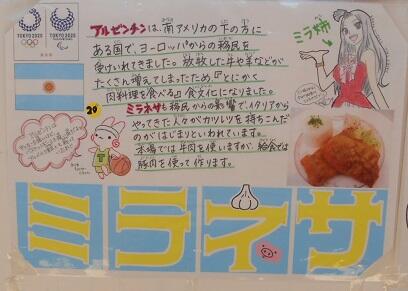 TOKYO 2020
TOKYO 2020
アルゼンチンは、南アメリカの下の方に
ある国で、ヨーロッパからの移民を
受けいれてきました。放牧した牛や羊などが
たくさん増えてしまったため、『とにかく
肉料理を食べる』食文化になりました。
ミラネサも移民からの影響で、イタリアから
やってきた人々がカツレツを持ちこんだ
のがはじまりといわれています。
本場では牛肉を使いますが、給食では
豚肉を使って作ります。
ミラ姉
20
ミラネサ